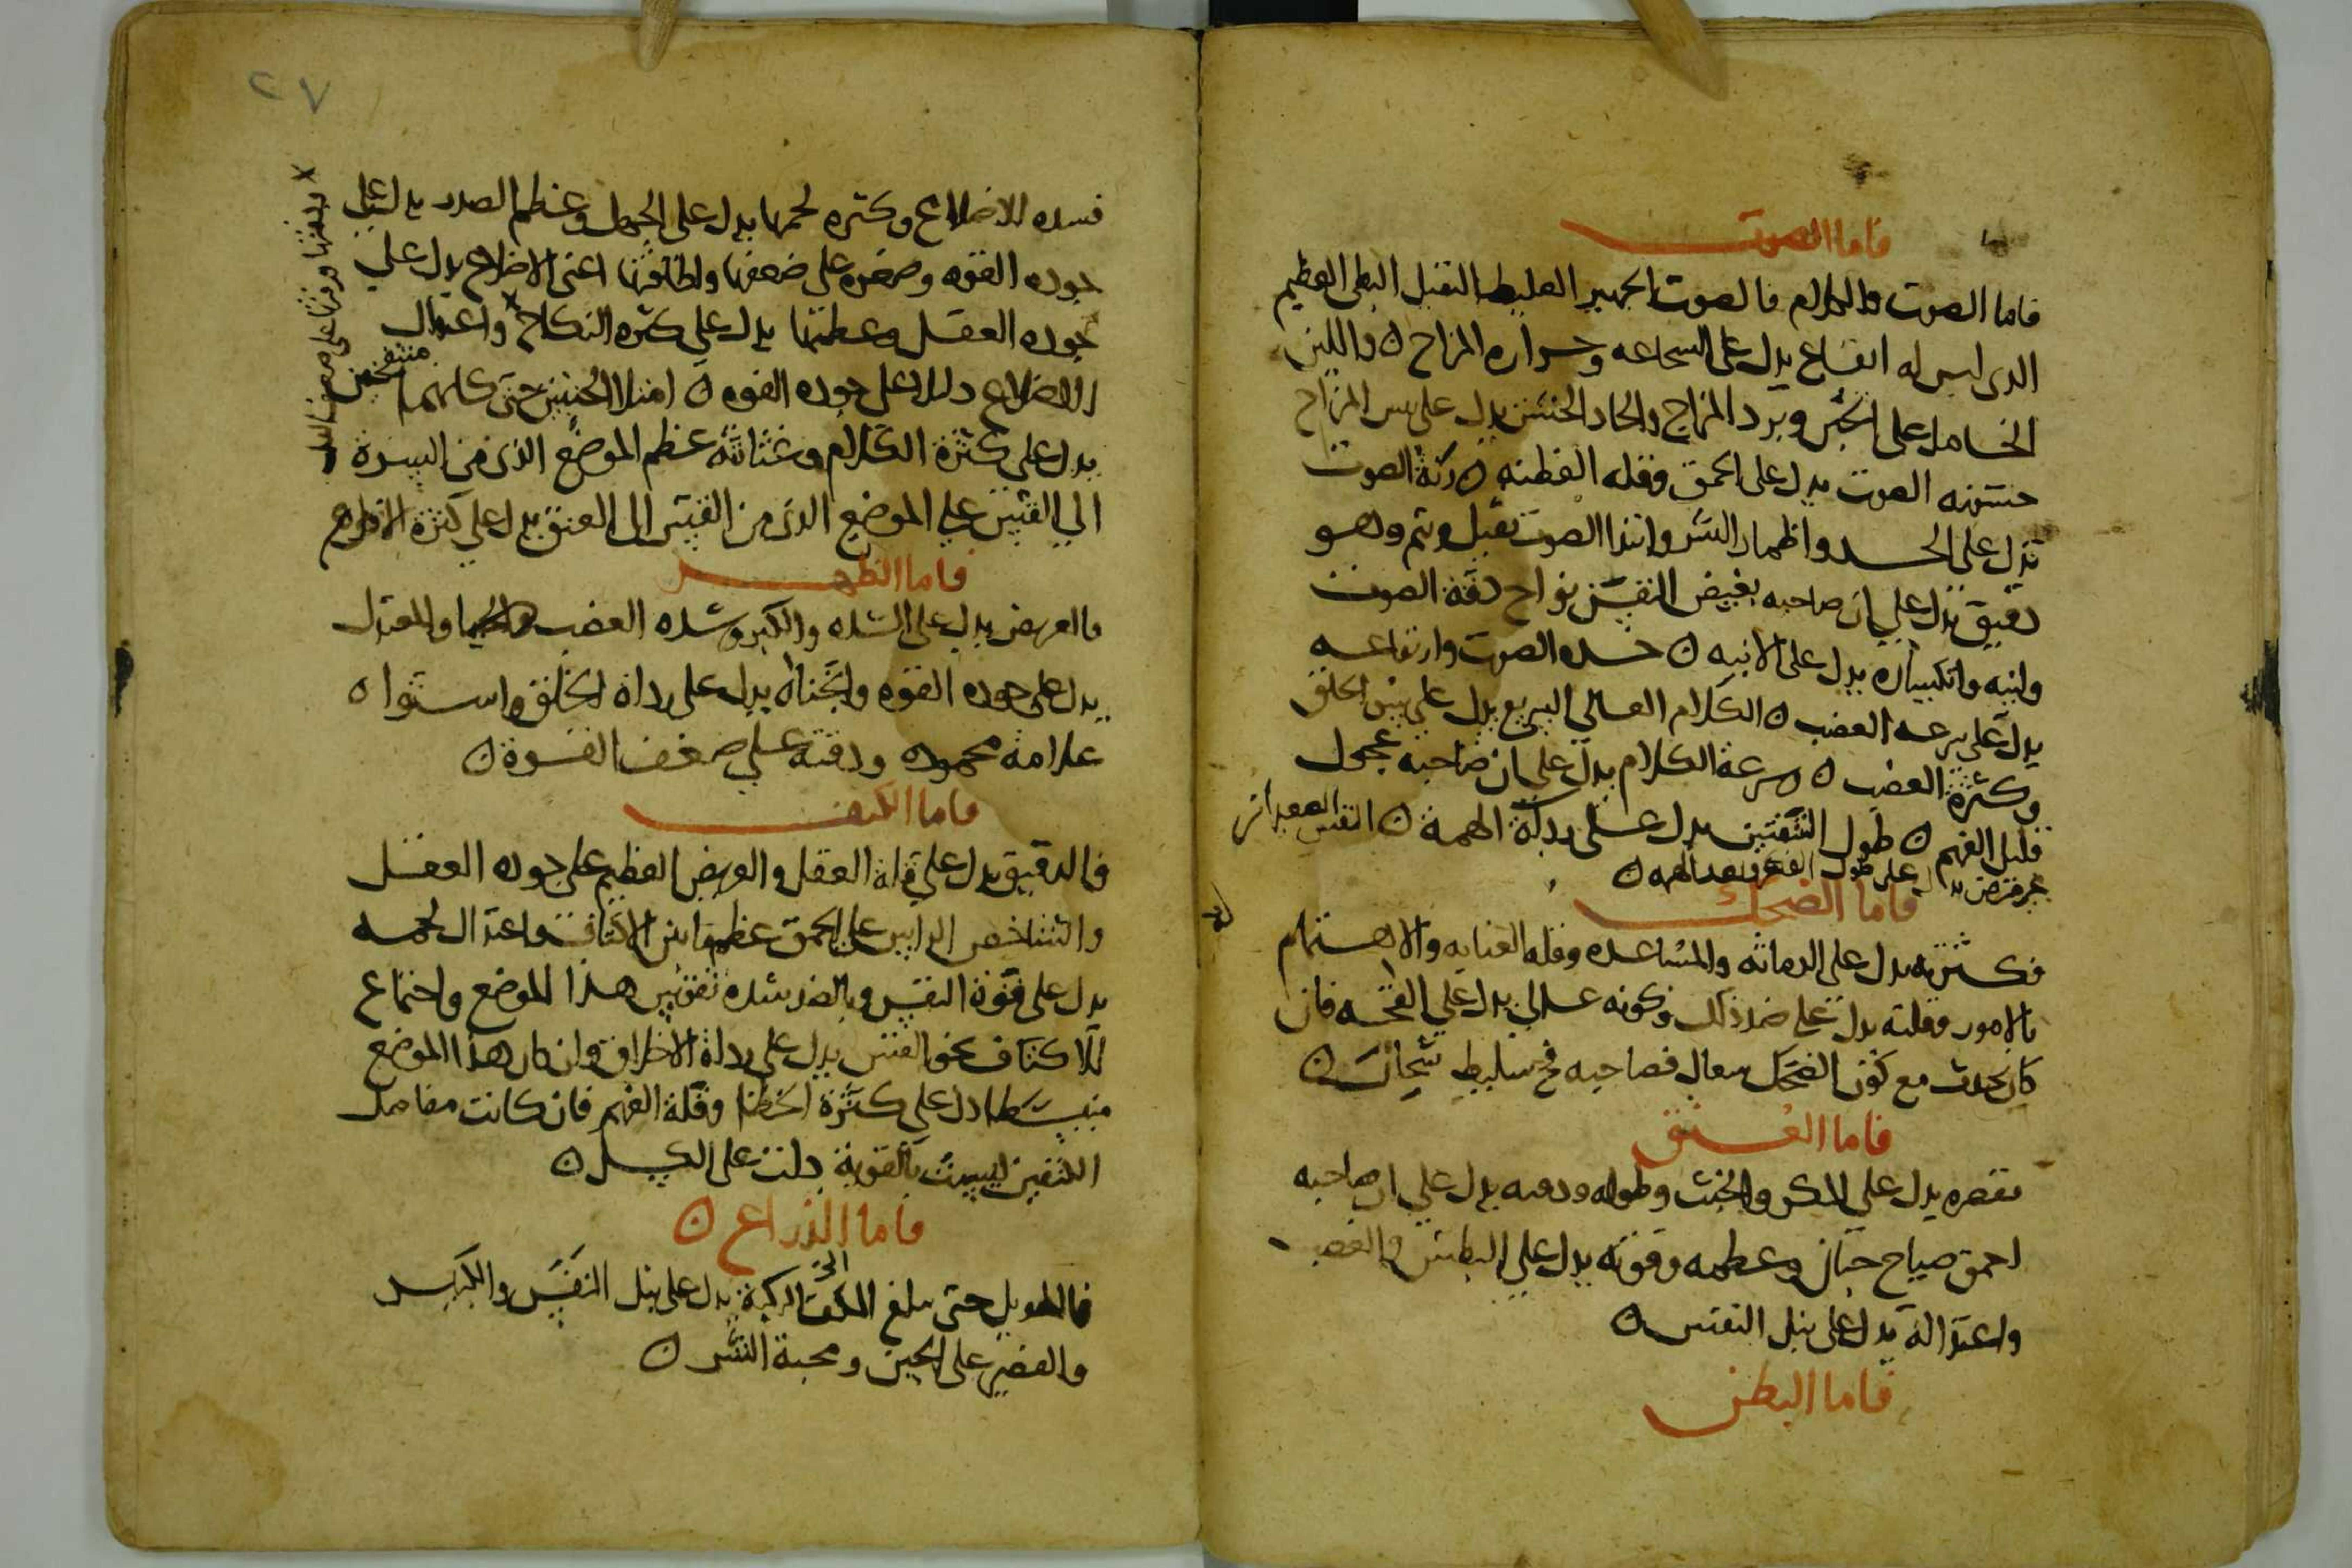 فاما الصوت
فاما الصوت والكلام فالصوت الجهير الغليظ الثقيل البطى العظيم
الدى ليس له اتساع يدل على الشجاعه وحراره المزاج ن واللين
الخامل على الجبن وبرد المزاج والحاد الخشن يدل على يبس المزاج
خشونه الصوت يدل على الحمق وقله الفطنه ن رنة الصوت
تدل على الحسد واظمار الشر وابتدا الصوت بثقيل ويتم وهو
دقيق تدل على ان صاحبه بغيض النفس نواح دقة الصوت
ولينه وانكساره يدل على الانيه ن حده الصوت وارتفاعه
يدل على سرعه الغضب ن الكلام العالي السريع يدل على الخلق
وكثرة الغضب ن سرعة الكلام يدل على ان صاحبه عجول
قليل الفهم ن طول النفس يدل على ردآة الهمة ن النفس الصعدا من
غير مرض يدل على طول الفكر وبعد الهمه ن
فاما الضحك
فكثرته يدل على الدماثه والمساعده وقله العنايه والاهتمام
بالامور وقلته يدل على ضد ذلك وكونه عالي يدل على القحه فان
كان يحدث مع كون الضحك سعال فصاحبه سليط ن
فاما العنق
فقصره يدل على المكر والخبث وطوله ودقته يدل على ان صاحبه
احمق صياح جبان وعظمه وقوته يدل على البطش والغضب
واعتداله يدل على نبل النفس ن
فاما البطن
٢٧
للاضلاع وكثره لحمها يدل على الجهل وعظم الصدر يدل على
جوده القوه وصغره على ضعفها ولطافتها اعنى الاضلاع يدل على
جوده العقل وعظمها يدل على كثره النكاح واعتدال
الاضلاع دليلا على جوده القوه ن امتلا الجنبين حتى كانهما منتفخين
يدل على كثرة الكلام وغثاثته عظم الموضع الذى من السرة
الي القس على الموضع الذى من القس الى العنق يدل على كثرة
فاما الظهر
فالعريض يدل على الشده والكبر وشده الغضب والمعتدل
يدل على جوده القوه وانحناه يدل على رداة الخلق واستواه
علامة محموده ودقته على ضعف القوة ن
فاما الكتف
فالدقيق يدل على قلة العقل والعريض العظيم على جوده العقل
والشاخص الراس على الحمق عظم ما بين الاكتاف واعتدال لحمه
يدل على قوة النفس وبالضد شده تقويس هذا الموضع واجتماع
للاكتاف نحو القس يدل على رداة الاخلاق وان كان هذا الموضع
منبسطا دل على كثرة الخطا وقلة الفهم فان كانت مفاصل
الكتفين ليست بالقوية دلت على الكسل ن
فاما الذراع ن
فالطويل حتى يبلغ الكف الى الركبة يدل على نبل النفس والكبر
والقصير على الجبن ومحبة الشر ن